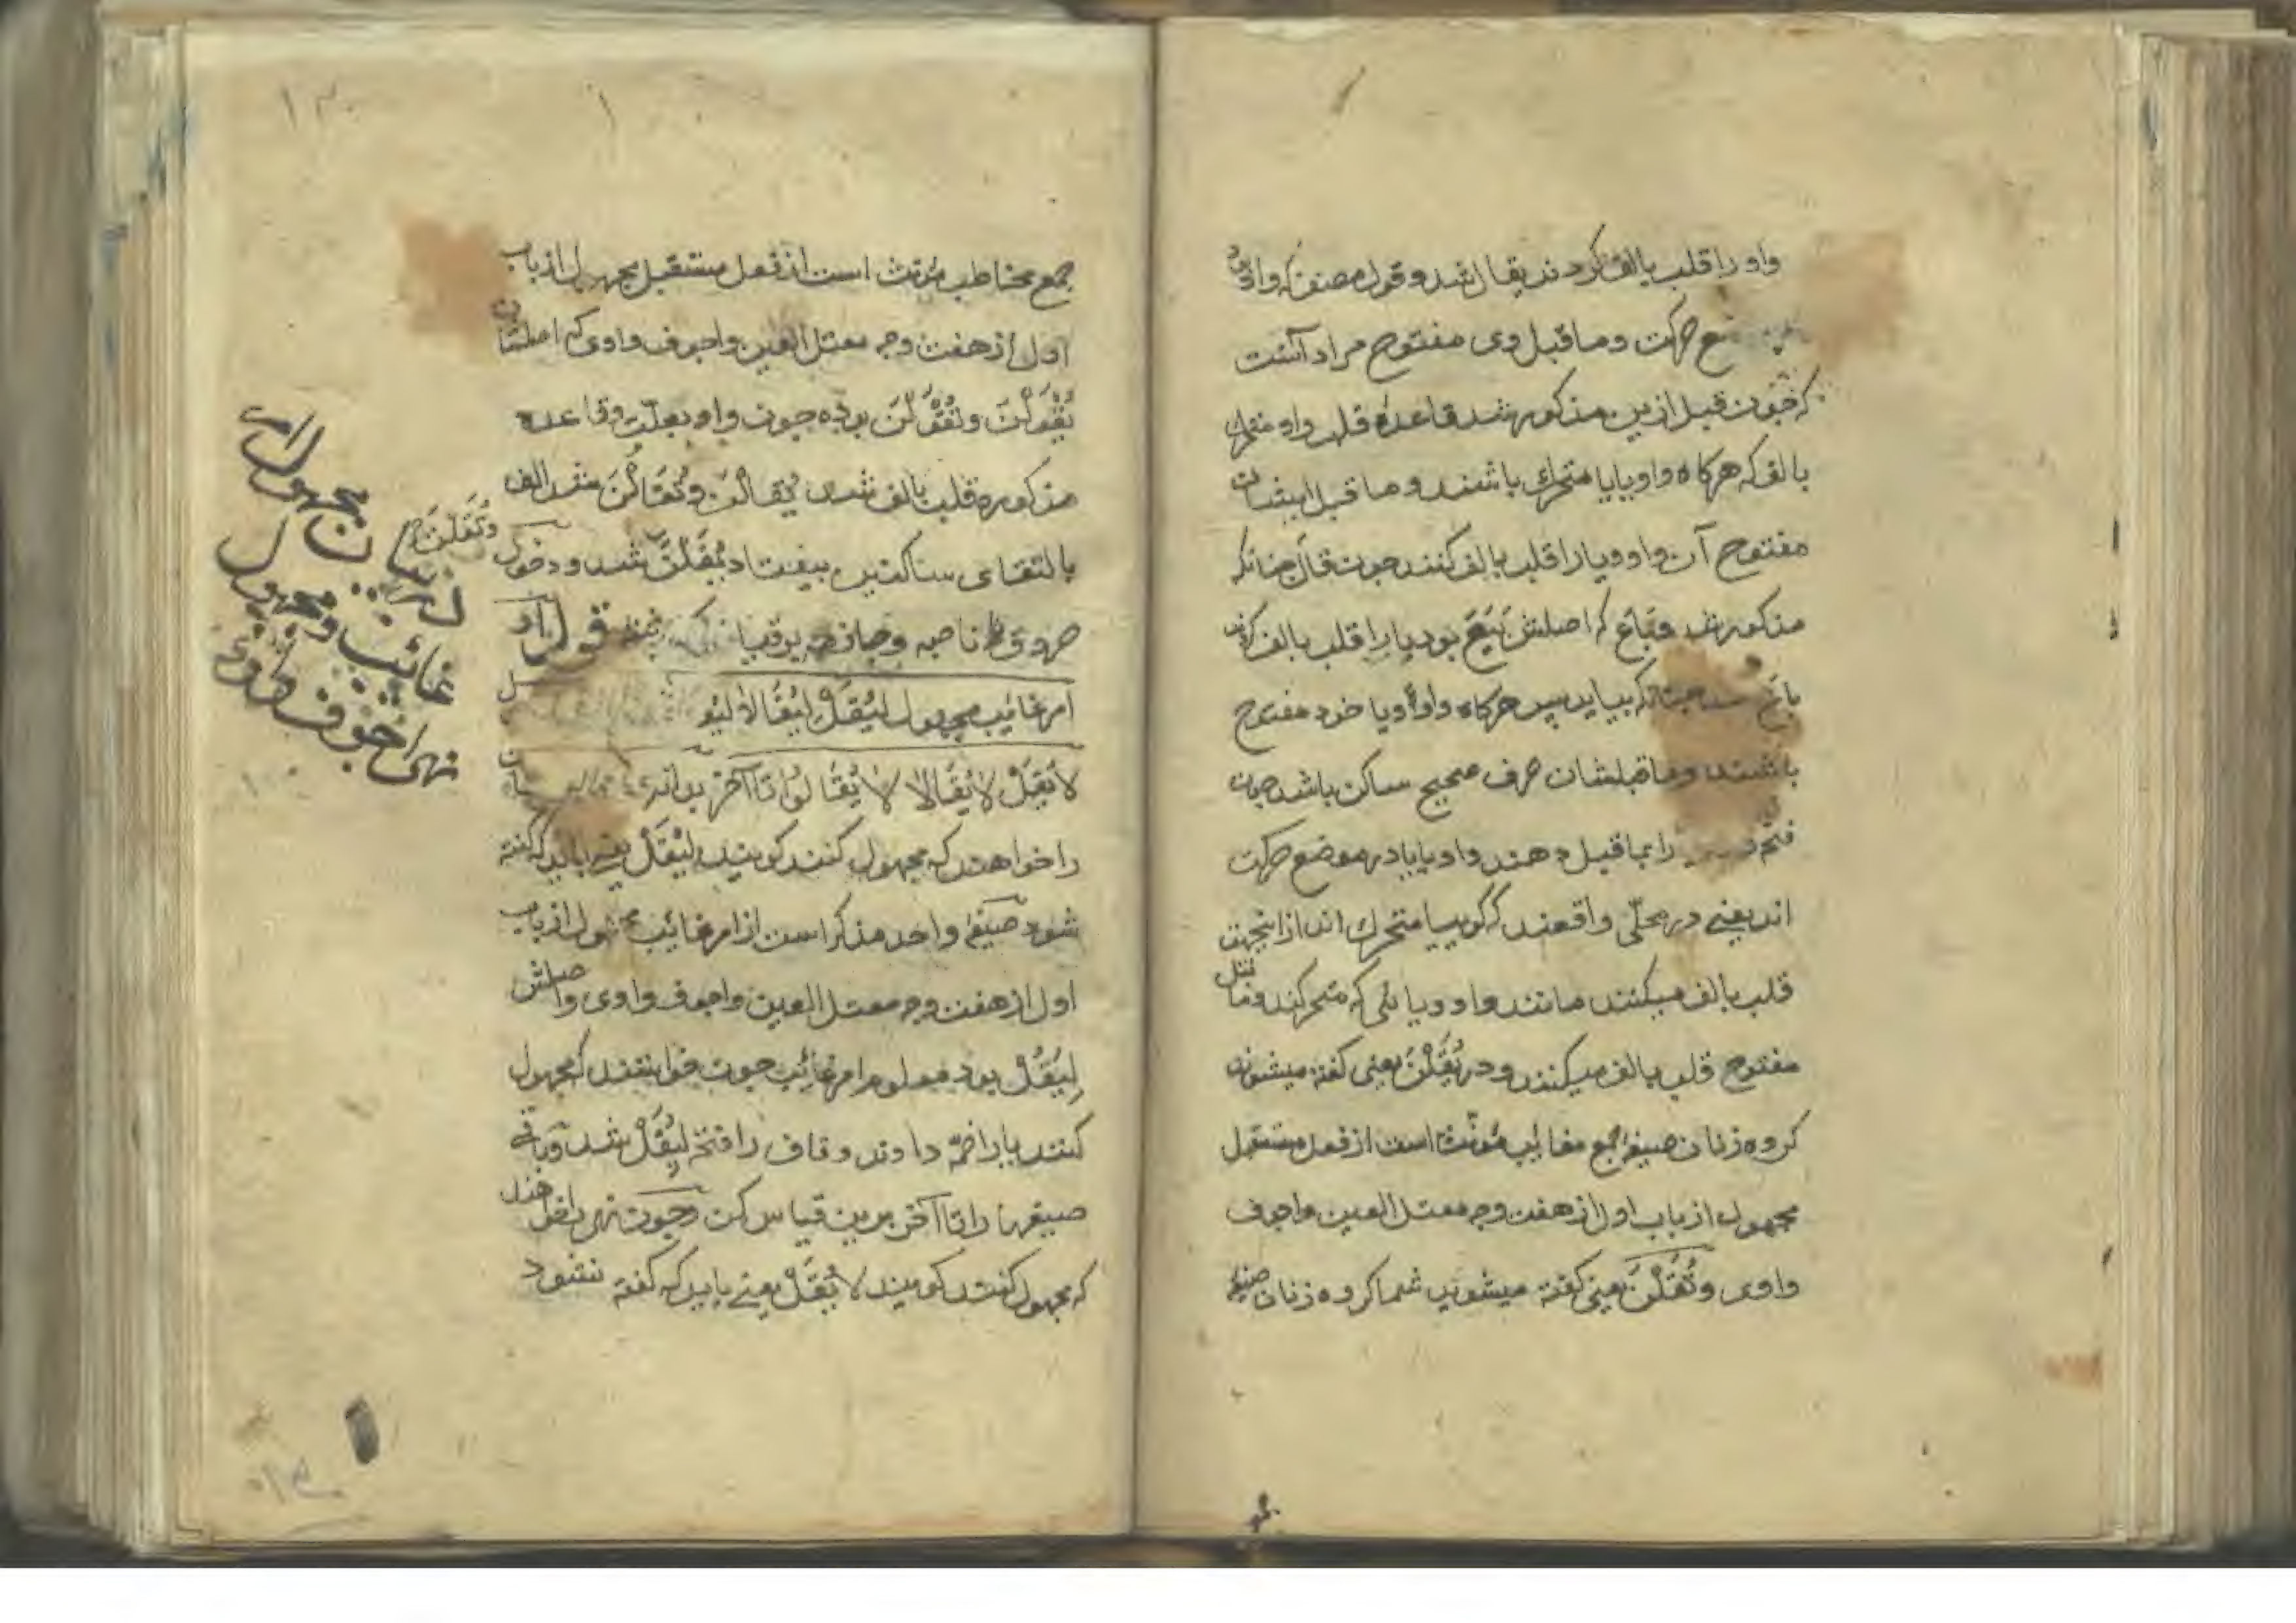 واو را قلب بالف کردند یقال شد و قول مصنف که واو
موضع حرکت و ما قبل وی مفتوح مراد آنست
که چون قبل ازین مذکور شد قاعدهٔ قلب واو متحرک
بالف که هرکاه واو یا یا متحرک باشند و ما قبل ایشان
مفتوح آن واو و یا را قلب بالف کنند چون قال چنانکه
مذکور شد و باع که اصلش بَیَعَ بود یا را قلب بالف کردند
باع شد چنانکه بیاید پس هرکاه واو و یا خود مفتوح
باشند و ما قبلشان حرف صحیح ساکن باشد چون
فتحه را بما قبل دهند واو یا یا در موضع حرکت
اند یعنی در محلی واقعند که کوییا متحرک اند ازینجهت
قلب بالف میکنند مانند واو و یائی که متحرکند و ما قبل
مفتوح قلب بالف میکنند و در یُقَلْنَ یعنی کفته میشوند
کروه زنان صیغهٔ جمع مغایب مؤنث است از فعل مستقبل
مجهول از باب اول از هفت وجه معتل العین و اجوف
واوی و تُقَلْنَ یعنی کفته میشوید شما کروه زنان صیغهٔ
جمع مخاطب مؤنث است از فعل مستقبل مجهول از باب
اول از هفت وجه معتل العین و اجوف واوی که اصلشان
یُقْوَلْنَ و تُقْوَلْنَ بوده چون واو بعلت و قاعده
مذکوره قلب بالف شد یُقَالْنَ و تُقَالْنَ شد الف
بالتقای ساکنین بیفتاد یُقَلْنَ شد و دخول
و تُقَلْنَ
حروف ناصبه و جازمه برو قیاس قول او
امر غایب مجهول لِیُقَلْ لِیُقَالا لیقو
لا یُقَلْ لا یُقَالا لا یُقَالُوا تا آخر بدانکه
را خواهند که مجهول کنند کویند لِیُقَلْ یعنی باید که کفته
شود صیغهٔ واحد مذکر است از امر غائب مجهول از باب
اول از هفت وجه معتل العین و اجوف واوی و اصلش
لِیَقُلْ بود معلوم امر غائب چون خواستند که مجهول
کنند یا را ضمه دادند و قاف را فتحه لِیُقَلْ شد و باقی
صیغها را تا آخر برین قیاس کن و چون نهی را خواهند
که مجهول کنند کویند لا یُقَلْ یعنی باید که کفته نشود
مجهول امر
غائب و مجهول
نهی اجوف واوی